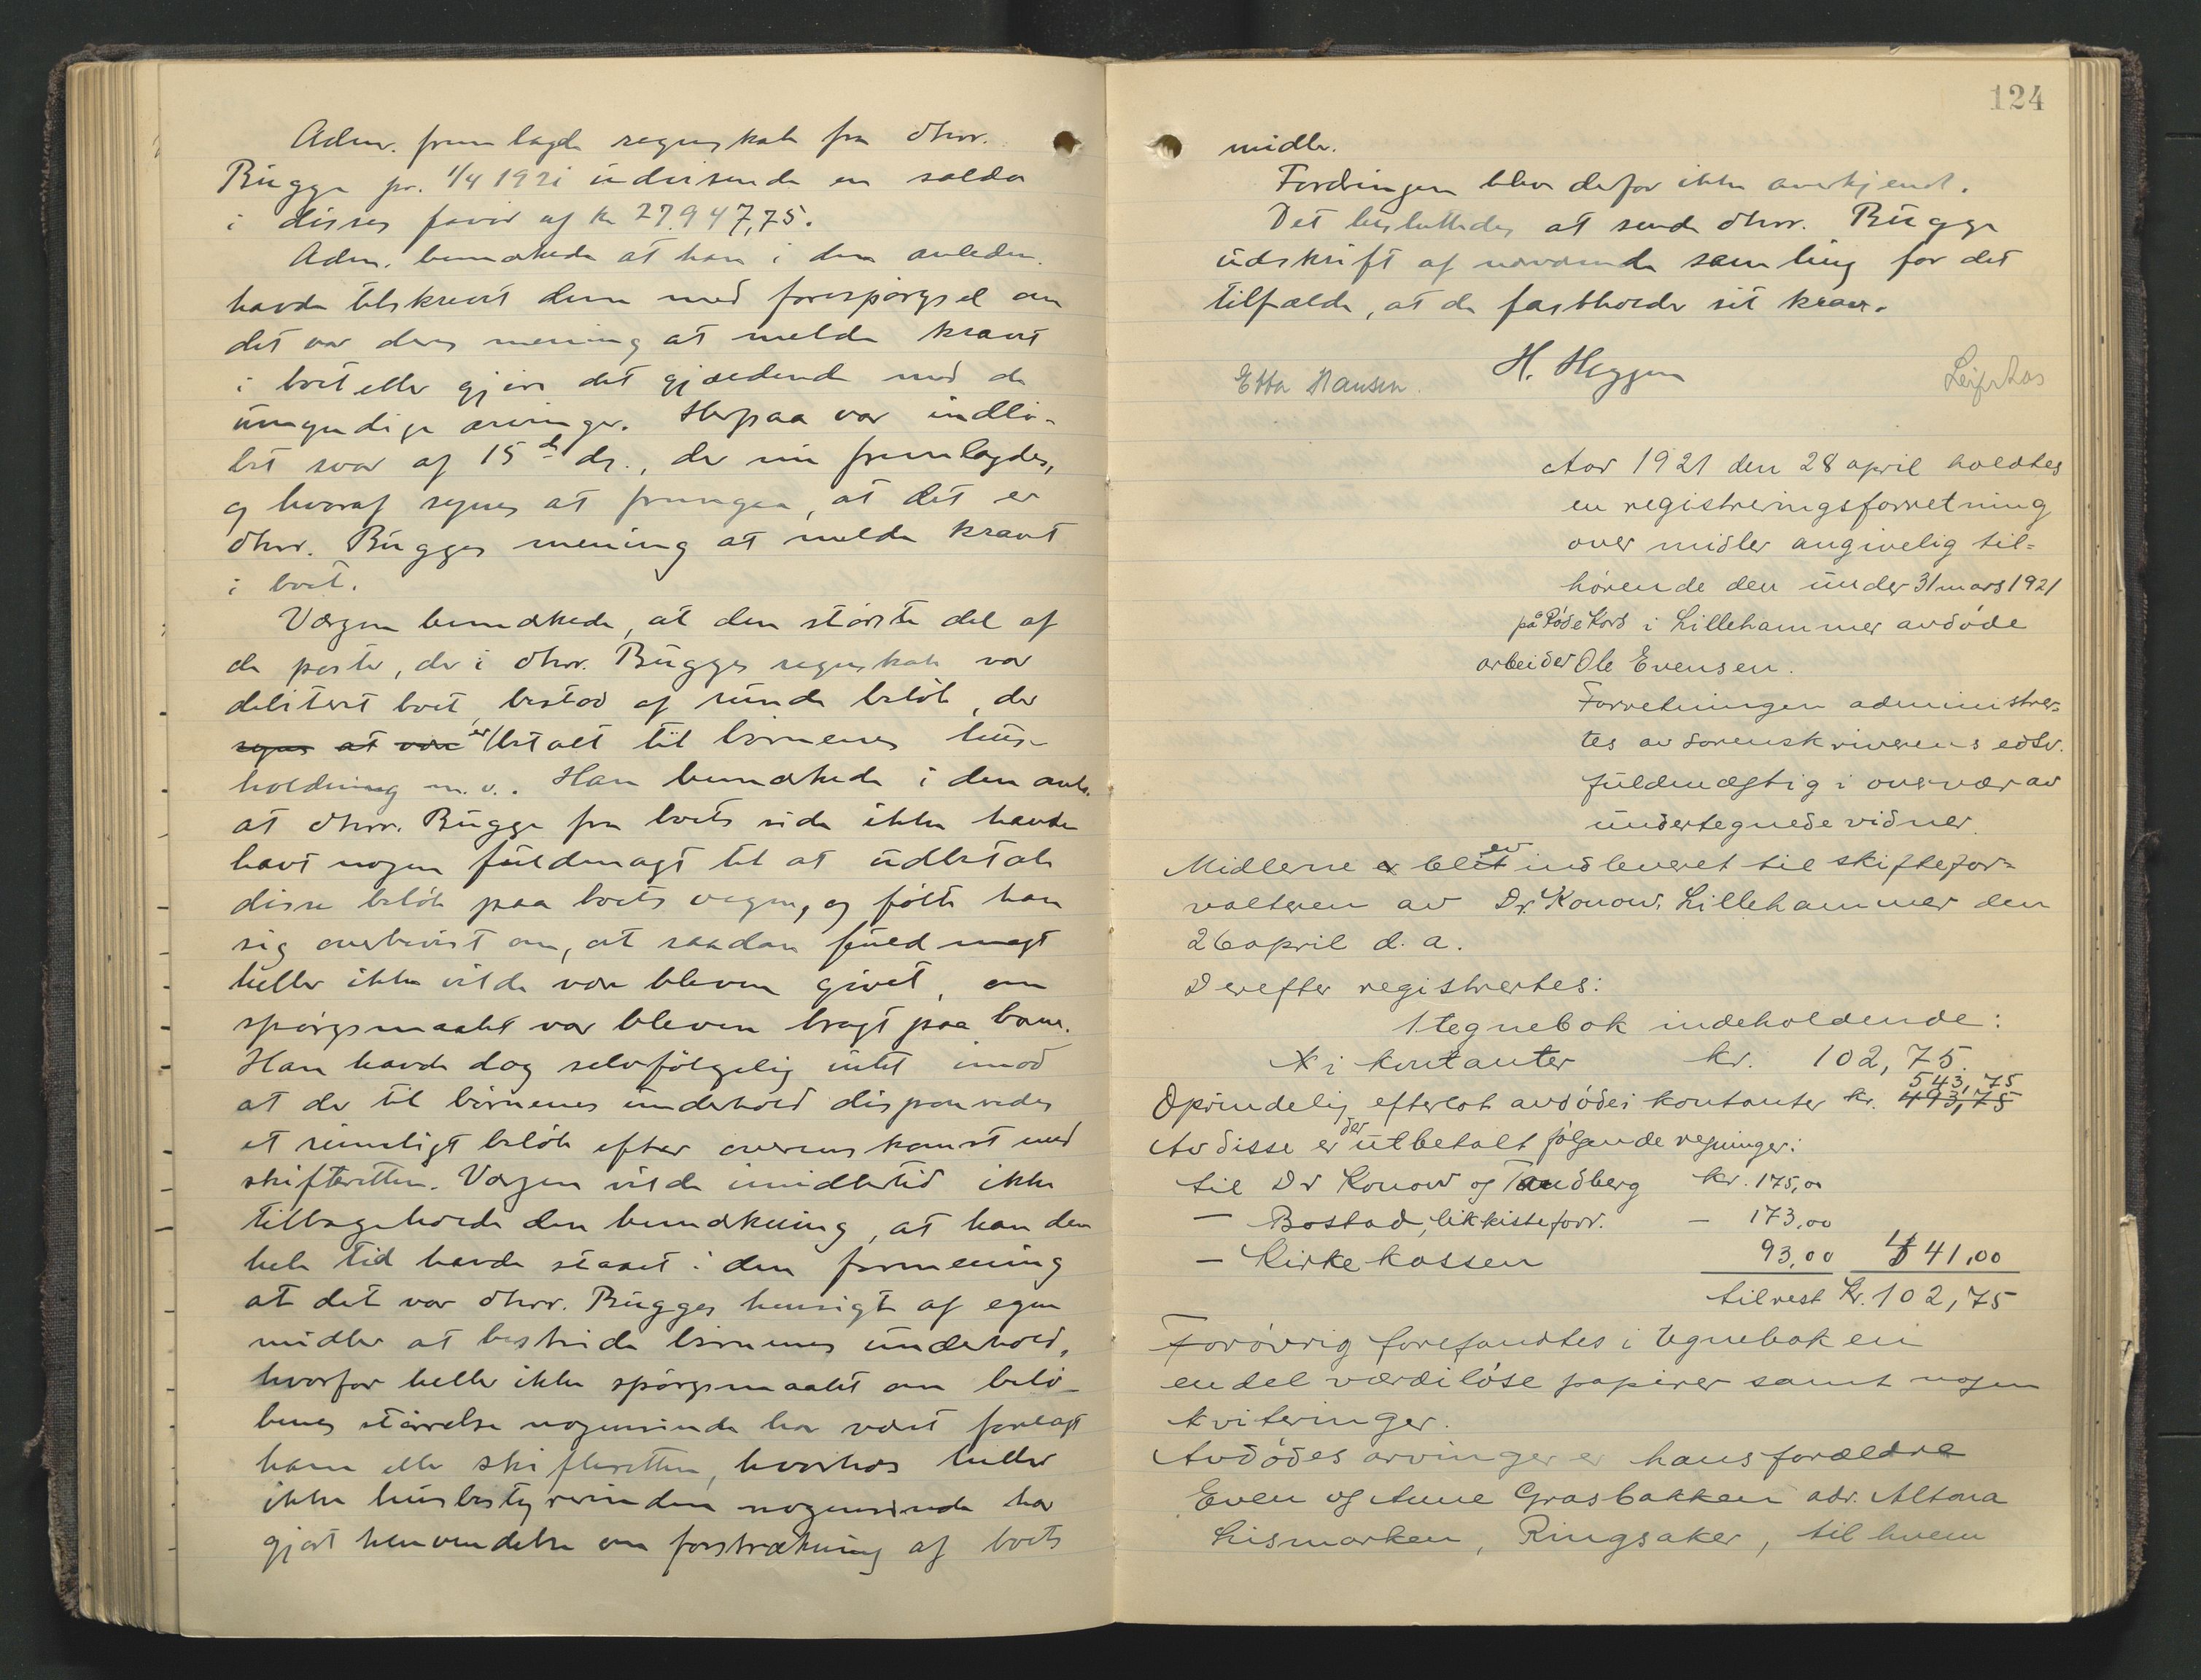 Adm. fremlagde regnskab fra dhrr.
Bugge pr. 1/4 1921 udvisende en saldo
i disses favør af kr 27.947,75.
Adm. bemærkede at han i den anledn.
havde tilskrevet dem med forespørgsel om
det var deres mening at melde kravet
i boet eller gjøre det gjældende mod de
umyndige arvinger. Herpaa var indlø-
bet svar af 15de ds., der nu fremlagdes,
og hvoraf synes at fremgaa, at det er
dhrr. Bugges mening at melde kravet
i boet.
Værgen bemærkede, at den største del af
de poster, der i dhrr. Bugges regnskab var
debitert boet, bestod af runde beløb, der
synes at være er betalt til børnenes hus-
holdning m.v.. Han bemærkede i den anl.
at dhrr. Bugge fra boets side ikke havde
havt nogen fuldmagt til at udbetale
disse beløb paa boets vegne, og følte han
sig overbevist om, at saadan fuldmagt
heller ikke vilde være bleven givet, om
spørgsmaalet var bleven bragt paa bane.
Han havde dog selvfølgelig intet imod
at der til børnenes underhold disponeredes
et rimeligt beløb efter overenskomst med
skifteretten. Værgen vilde imidlertid ikke
tilbageholde den bemærkning, at han den
hele tid havde staaet i den formening
at det var dhrr. Bugges hensigt af egne
midler at bestride børnenes underhold,
hvorfor heller ikke spørgsmaalet om belø-
benes størrelse nogensinde har været forelagt
ham eller skifteretten, hvorhos heller
ikke husbestyrerinden nogensinde har
gjort henvendelse om forstrækning af boets
124
midler.
Fordringen blev derfor ikke anerkjendt.
Det besluttedes at sende dhrr. Bugge
udskrift af nærværende samling for det
tilfælde, at de fastholder sit krav.
Ebba Hansen. H. Heggen Leif Aas
Aar 1921 den 28 april holdtes
en registreringsforretning
over midler angivelig til=
hørende den under 31 mars 1921
på Røde Kors i Lillehammer avdøde
arbeider Ole Evensen.
Forretningen administrer=
tes av sorenskriverens edsv.
fuldmægtig i overvær av
undertegnede vidner.
Midlerne er blet ev indleveret til skiftefor=
valteren av Dr. Konow, Lillehammer den
26 april d. a.
Derefter registrertes:
1 tegnebok indeholdende:
i kontanter kr. 102,75.
543,75
Oprindelig efterlot avdøde i kontanter kr. 493,75
Av disse er der utbetalt følgende regninger:
til Dr Konow og Tandberg kr. 175,00
— Bostad, likkisteforr. — 173,00
— Kirkekassen 93,00 441,00
til rest kr. 102,75
Forøvrig forefandtes i tegneboken
endel værdiløse papirer samt nogen
kviteringer.
Avdødes arvinger er hans forældre
Even og Anne Grasbakken adr. Altona
Lismarken, Ringsaker, til hvem